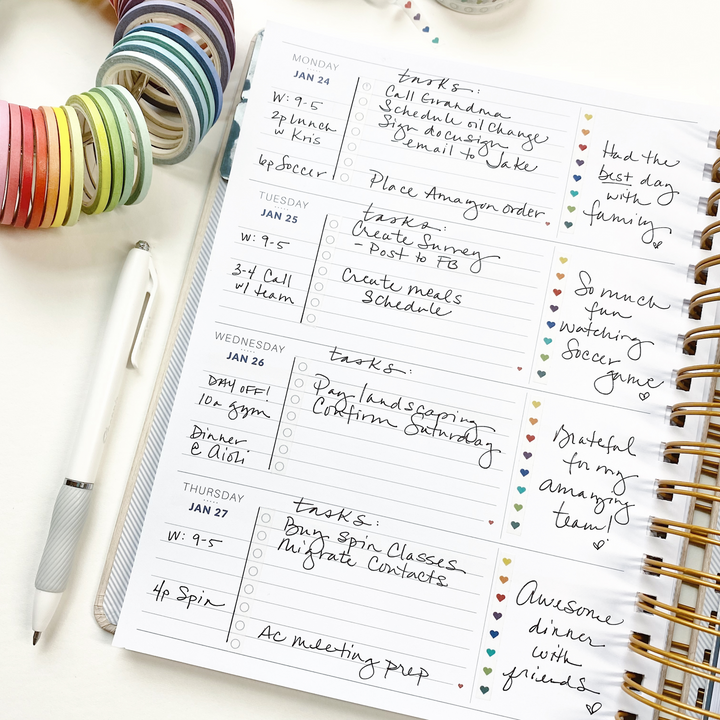 MONDAY
JAN 24
W: 9-5
2p Lunch
w Kris
6p Soccer
tasks:
Call Grandma
Schedule oil change
Sign docusign
- email to Jake
Place Amazon order
Had the
best day
with
family
TUESDAY
JAN 25
W: 9-5
3-4 Call
w/ team
tasks:
Create Survey
- Post to FB
Create meals
Schedule
So much
fun
watching
Soccer
game
WEDNESDAY
JAN 26
DAY OFF!
10a gym
Dinner
@ Aioli
tasks:
Pay landscaping
Confirm Saturday
Grateful
for my
amazing
team!
THURSDAY
JAN 27
W: 9-5
4p Spin
tasks:
Buy Spin Classes
Migrate Contacts
AC meeting prep
Awesome
dinner
with
friends